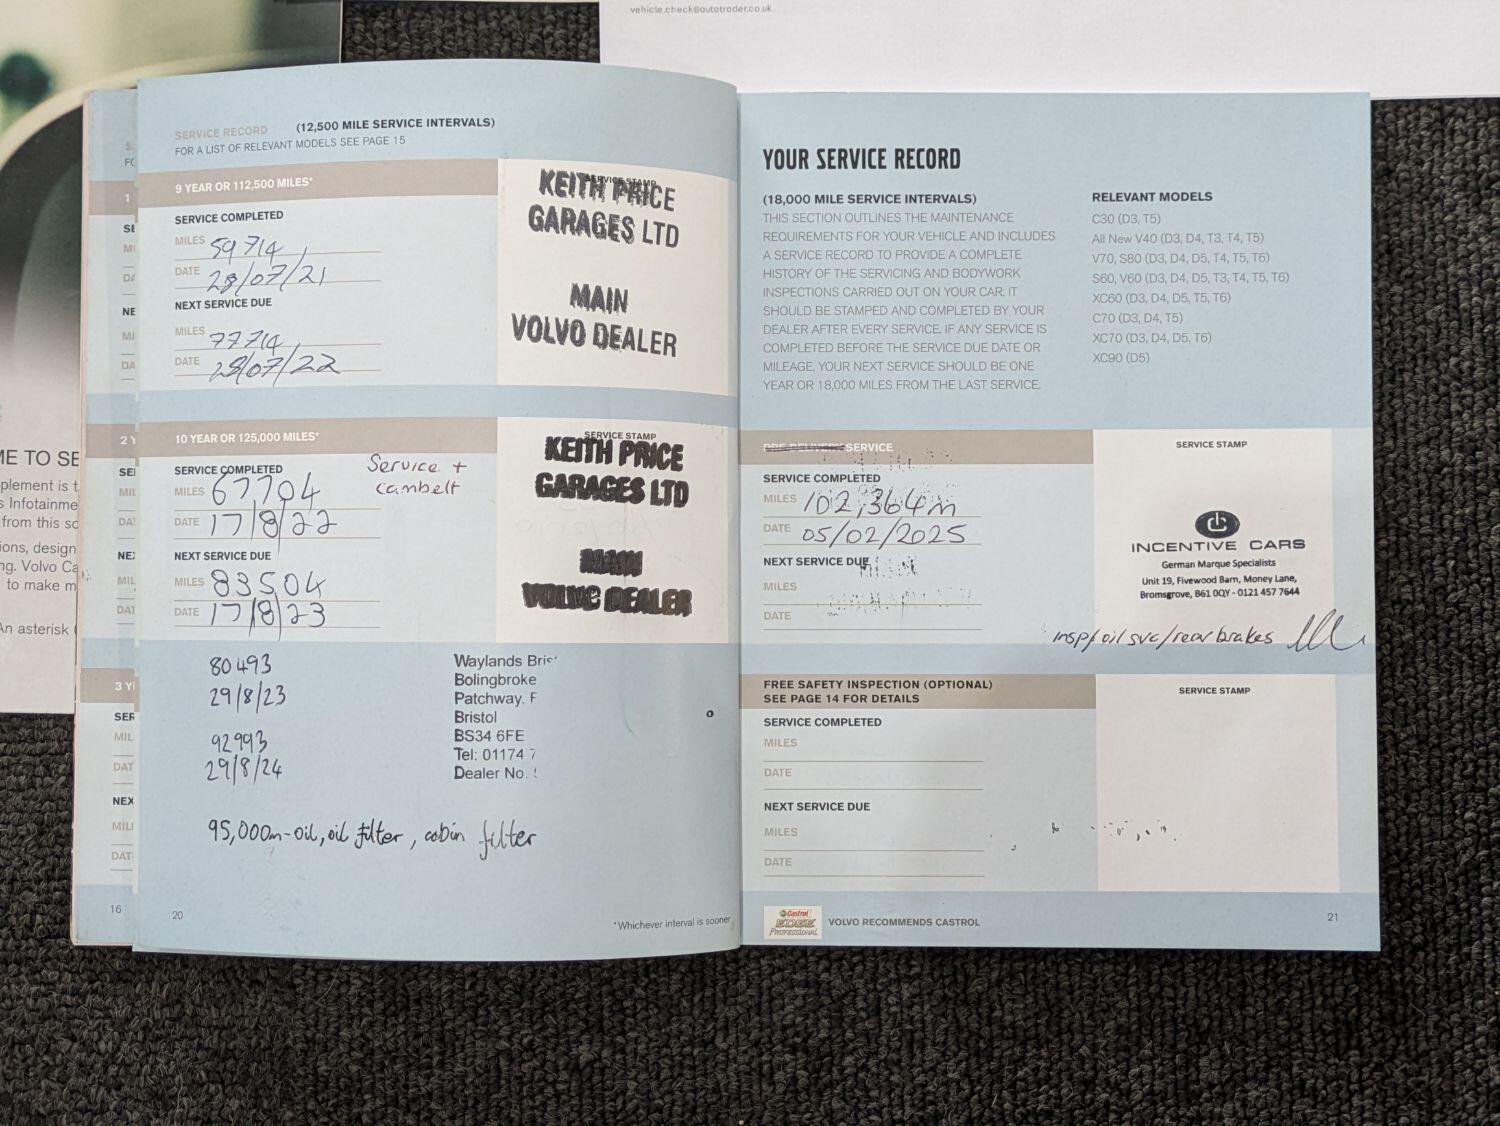 vehicle.check@autotrader.co.uk
SERVICE RECORD (12,500 MILE SERVICE INTERVALS)
FOR A LIST OF RELEVANT MODELS SEE PAGE 15
9 YEAR OR 112,500 MILES*
SERVICE STAMP
KEITH PRICE
GARAGES LTD
MAIN
VOLVO DEALER
SERVICE COMPLETED
MILES 59714
DATE 28/07/21
NEXT SERVICE DUE
MILES 77714
DATE 28/07/22
10 YEAR OR 125,000 MILES*
SERVICE STAMP
KEITH PRICE
GARAGES LTD
MAIN
VOLVO DEALER
SERVICE COMPLETED
Service +
cambelt
MILES 67704
DATE 17/8/22
NEXT SERVICE DUE
MILES 83504
DATE 17/8/23
80493
29/8/23
92993
29/8/24
Waylands Bris
Bolingbroke
Patchway, F
Bristol
BS34 6FE
Tel: 01174 7
Dealer No.
95,000m-oil, oil filter, cabin filter
20
*Whichever interval is sooner
YOUR SERVICE RECORD
(18,000 MILE SERVICE INTERVALS)
THIS SECTION OUTLINES THE MAINTENANCE
REQUIREMENTS FOR YOUR VEHICLE AND INCLUDES
A SERVICE RECORD TO PROVIDE A COMPLETE
HISTORY OF THE SERVICING AND BODYWORK
INSPECTIONS CARRIED OUT ON YOUR CAR. IT
SHOULD BE STAMPED AND COMPLETED BY YOUR
DEALER AFTER EVERY SERVICE. IF ANY SERVICE IS
COMPLETED BEFORE THE SERVICE DUE DATE OR
MILEAGE, YOUR NEXT SERVICE SHOULD BE ONE
YEAR OR 18,000 MILES FROM THE LAST SERVICE.
RELEVANT MODELS
C30 (D3, T5)
All New V40 (D3, D4, T3, T4, T5)
V70, S80 (D3, D4, D5, T4, T5, T6)
S60, V60 (D3, D4, D5, T3, T4, T5, T6)
XC60 (D3, D4, D5, T5, T6)
C70 (D3, D4, T5)
XC70 (D3, D4, D5, T6)
XC90 (D5)
PRE-DELIVERY SERVICE
SERVICE COMPLETED
MILES 102,364m
DATE 05/02/2025
NEXT SERVICE DUE
MILES
DATE
SERVICE STAMP
INCENTIVE CARS
German Marque Specialists
Unit 19, Fivewood Barn, Money Lane,
Bromsgrove, B61 0QY - 0121 457 7644
insp/oil svc/rear brakes
FREE SAFETY INSPECTION (OPTIONAL)
SEE PAGE 14 FOR DETAILS
SERVICE STAMP
SERVICE COMPLETED
MILES
DATE
NEXT SERVICE DUE
MILES
DATE
Castrol
EDGE
PROFESSIONAL
VOLVO RECOMMENDS CASTROL
21
16
ME TO SE
plement is t
s Infotainme
from this so
ions, design
ng. Volvo Ca
to make m
An asterisk